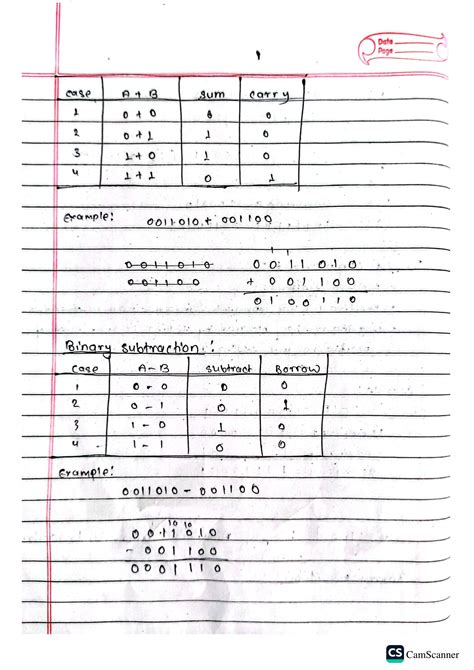 Date
Page
1
case A + B sum carry
1 0 + 0 0 0
2 0 + 1 1 0
3 1 + 0 1 0
4 1 + 1 0 1
Example: 0011010 + 001100
1 1
0011010 0011010
001100 + 001100
0100110
Binary subtraction :
Case A - B subtract Borrow
1 0 - 0 0 0
2 0 - 1 0 1
3 1 - 0 1 0
4 1 - 1 0 0
Example:
0011010 - 001100
10 10
0011010
- 001100
0001110
CS CamScanner